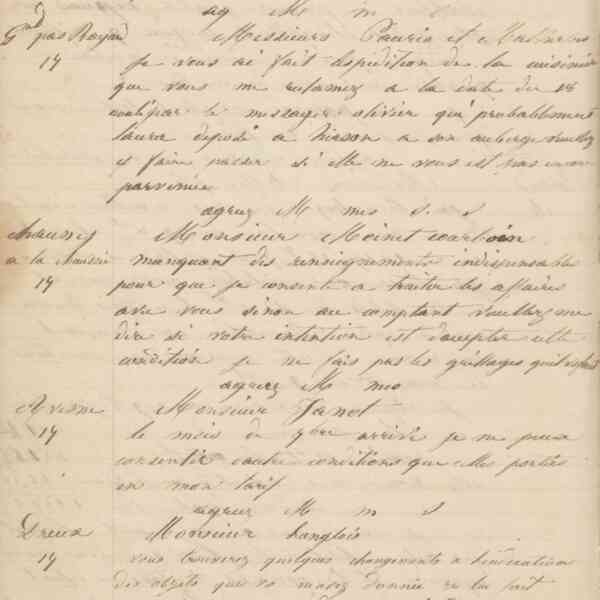 ag M m
Gd pas Bayard Messieurs Pauris et
19 Je vous ai fait l'espedition de la cuisinière
que vous me reclamez a la date du 18
courant par le messager olivier qui probablement
l'aura deposé a hirson a son auberge veuillez
la faire passer si elle ne vous est pas encore
parvenue
agrez M mes s. s
chauny Monsieur Moinet
a la chaussée manquant des renseignements indispensables
19 pour que je consente a traiter les affaires
avec vous sinon au comptant veuillez me
dire si votre intention est d'accepter cette
condition je ne fais pas les grillages
agrez M mes
Avesne Monsieur Janot
19 le mois de 9bre arrivé je ne peux
consentir d'autre conditions que celles portées
en mon tarif
agrez M m s
Dreux Monsieur Langlois
19 vous trouverez quelques changements a
des objets que vs donnée ce la fait